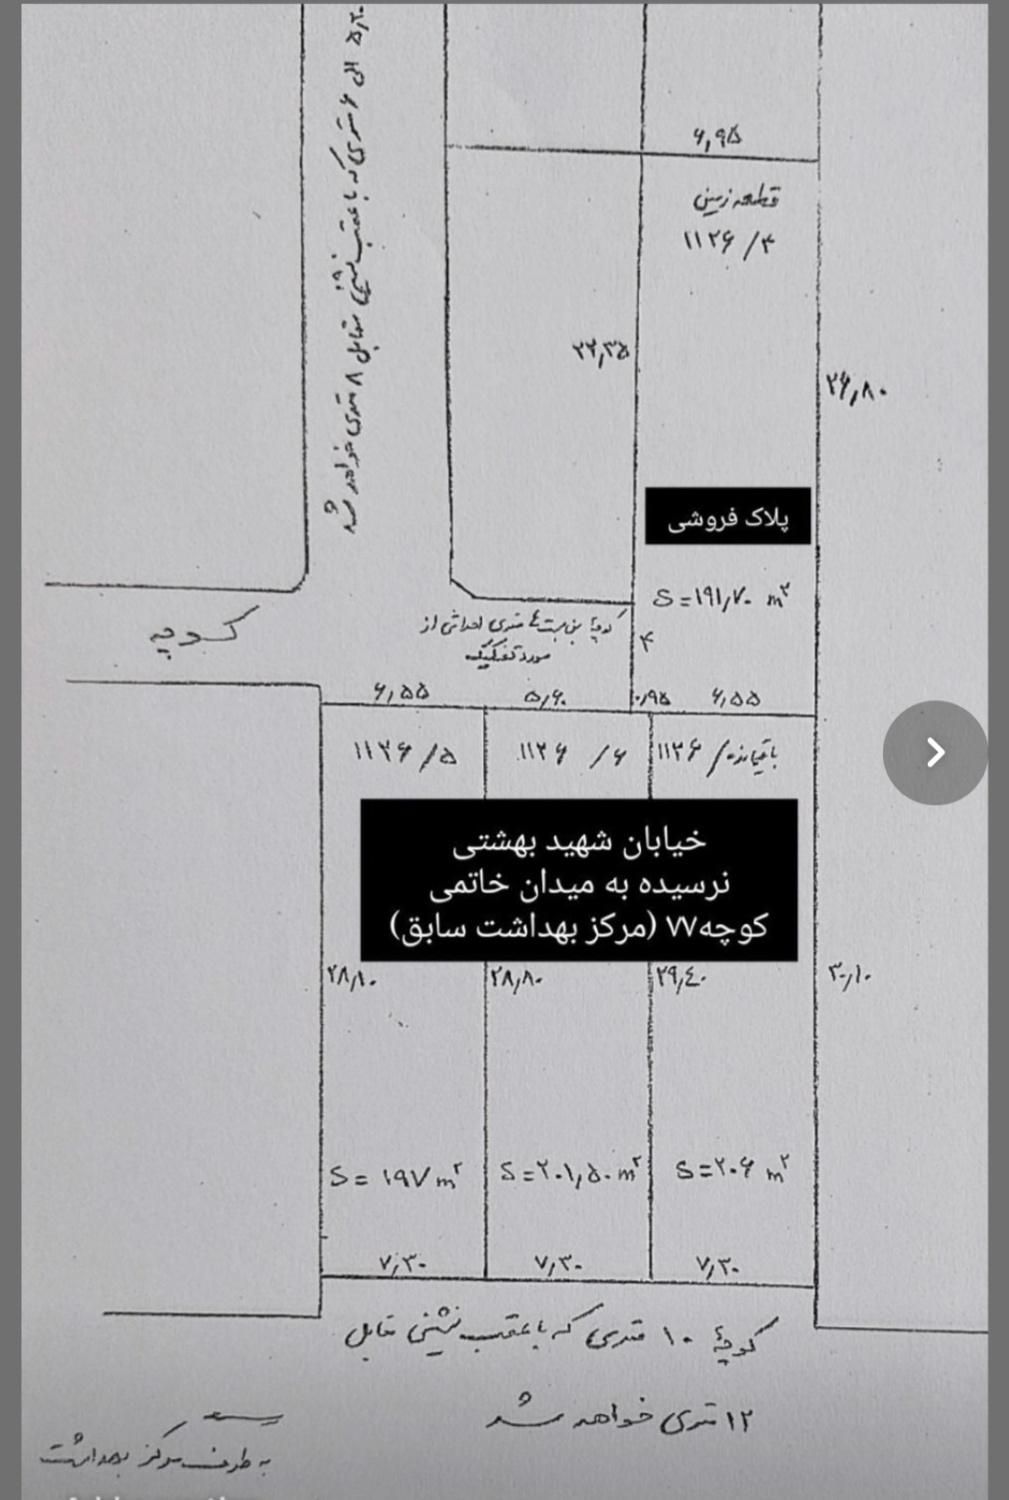 ۵٫۲۰ الی ۶ متری که با عقب نشینی متقابل ۸ متری خواهد شد
۶٫۹۵
قطعه زمین
۱۱۲۶/۴
۲۲٫۳۵
۲۶٫۸۰
پلاک فروشی
S=۱۹۱٫۷۰ m²
کوچه
کوچه بن بست ٤ متری احداثی از
مورد تفکیک
۴
۶٫۵۵
۵٫۶۰
۰٫۹۵
۶٫۵۵
۱۱۲۶/۵
۱۱۲۶/۶
باقیمانده/۱۱۲۶
خیابان شهید بهشتی
نرسیده به میدان خاتمی
کوچه۷۷ (مرکز بهداشت سابق)
۲۸٫۱۰
۲۸٫۸۰
۲۹٫٤۰
۳۰٫۱۰
S=۱۹۷ m²
S=۲۰۱٫۵۰ m²
S=۲۰۶ m²
۷٫۳۰
۷٫۳۰
۷٫۳۰
کوچهٔ ۱۰ متری که با عقب نشینی مقابل
۱۲ متری خواهد شد
به طرف مرکز بهداشت